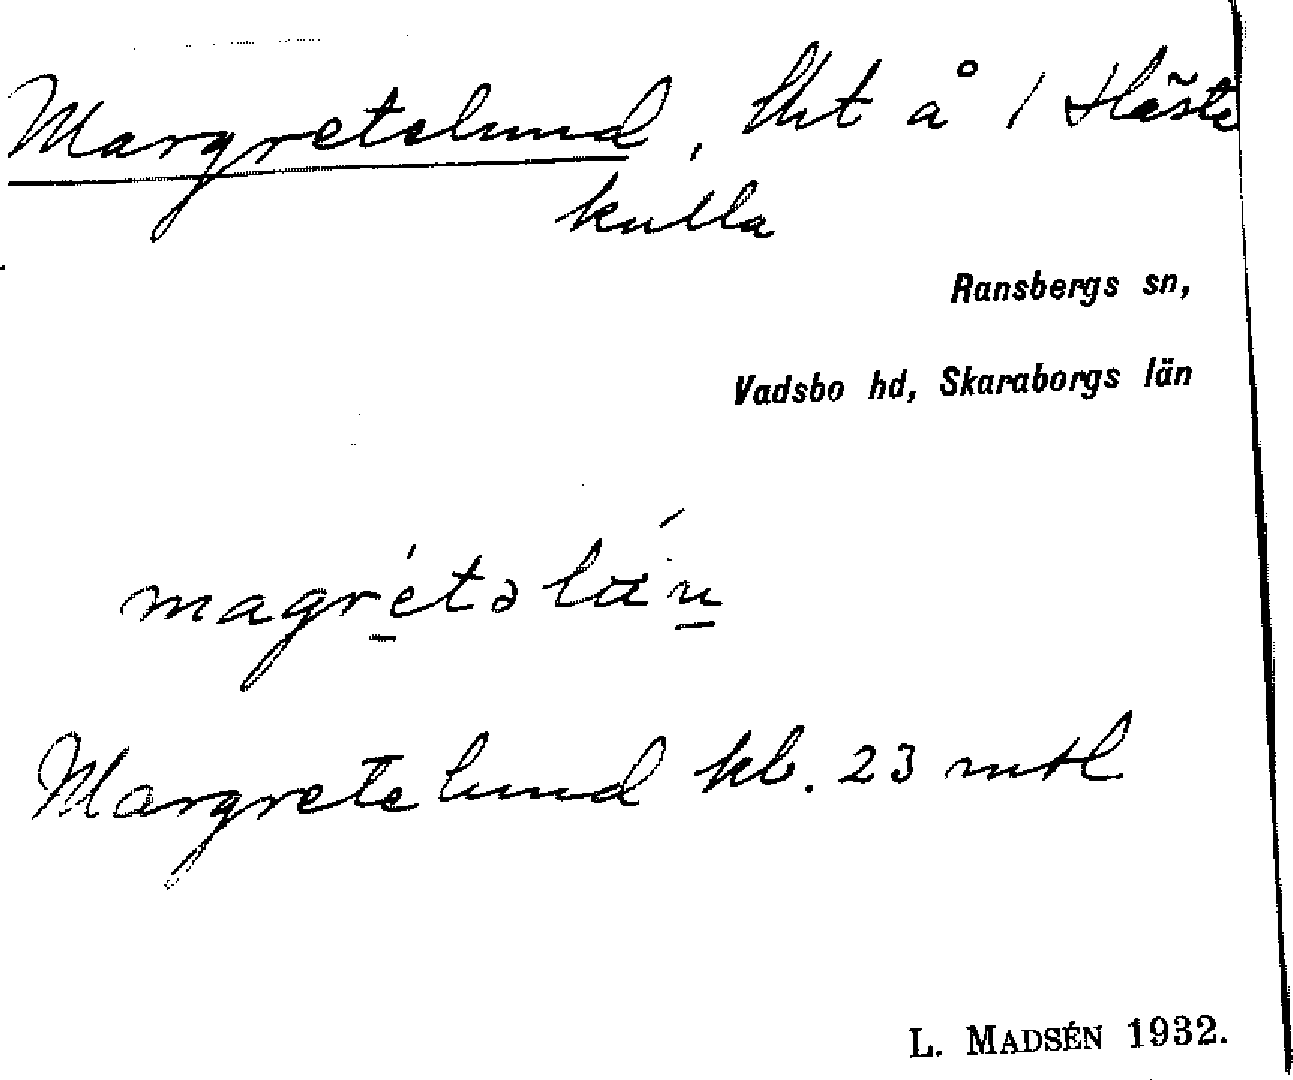 Margretelund, lht å 1 Häste
kulla
Ransbergs sn,
Vadsbo hd, Skaraborgs län
Margretelund kb. 23 mtl
L. MADSÉN 1932.